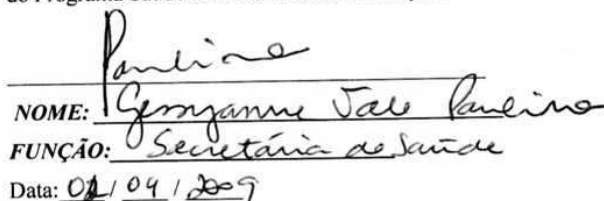 Paulino
NOME: Gessyanne Vale Paulino
FUNÇÃO: Secretária de Saúde
Data: 02/ 04 / 2009